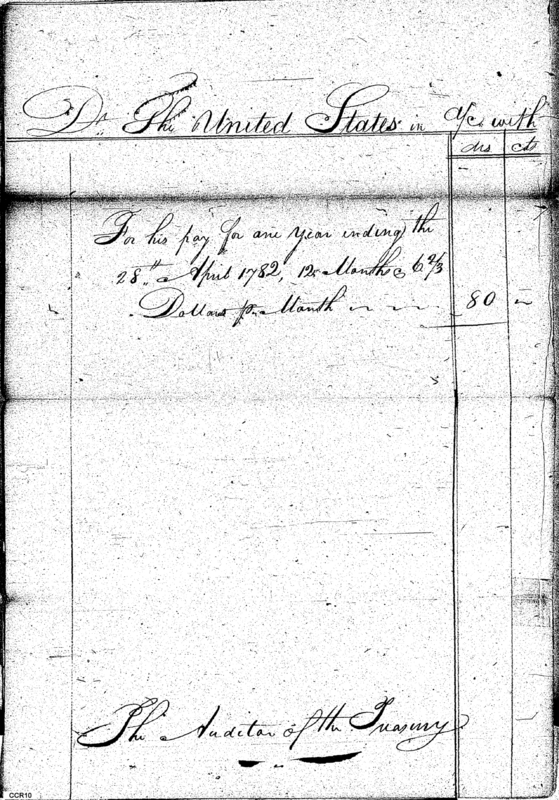 Dr. The United States in a/c. with
dls cts
For his pay for one year ending the
28th April 1782, 12 Months @ 6 2/3
Dollars pr. Month 80 "
The Auditor of the Treasury
CCR10